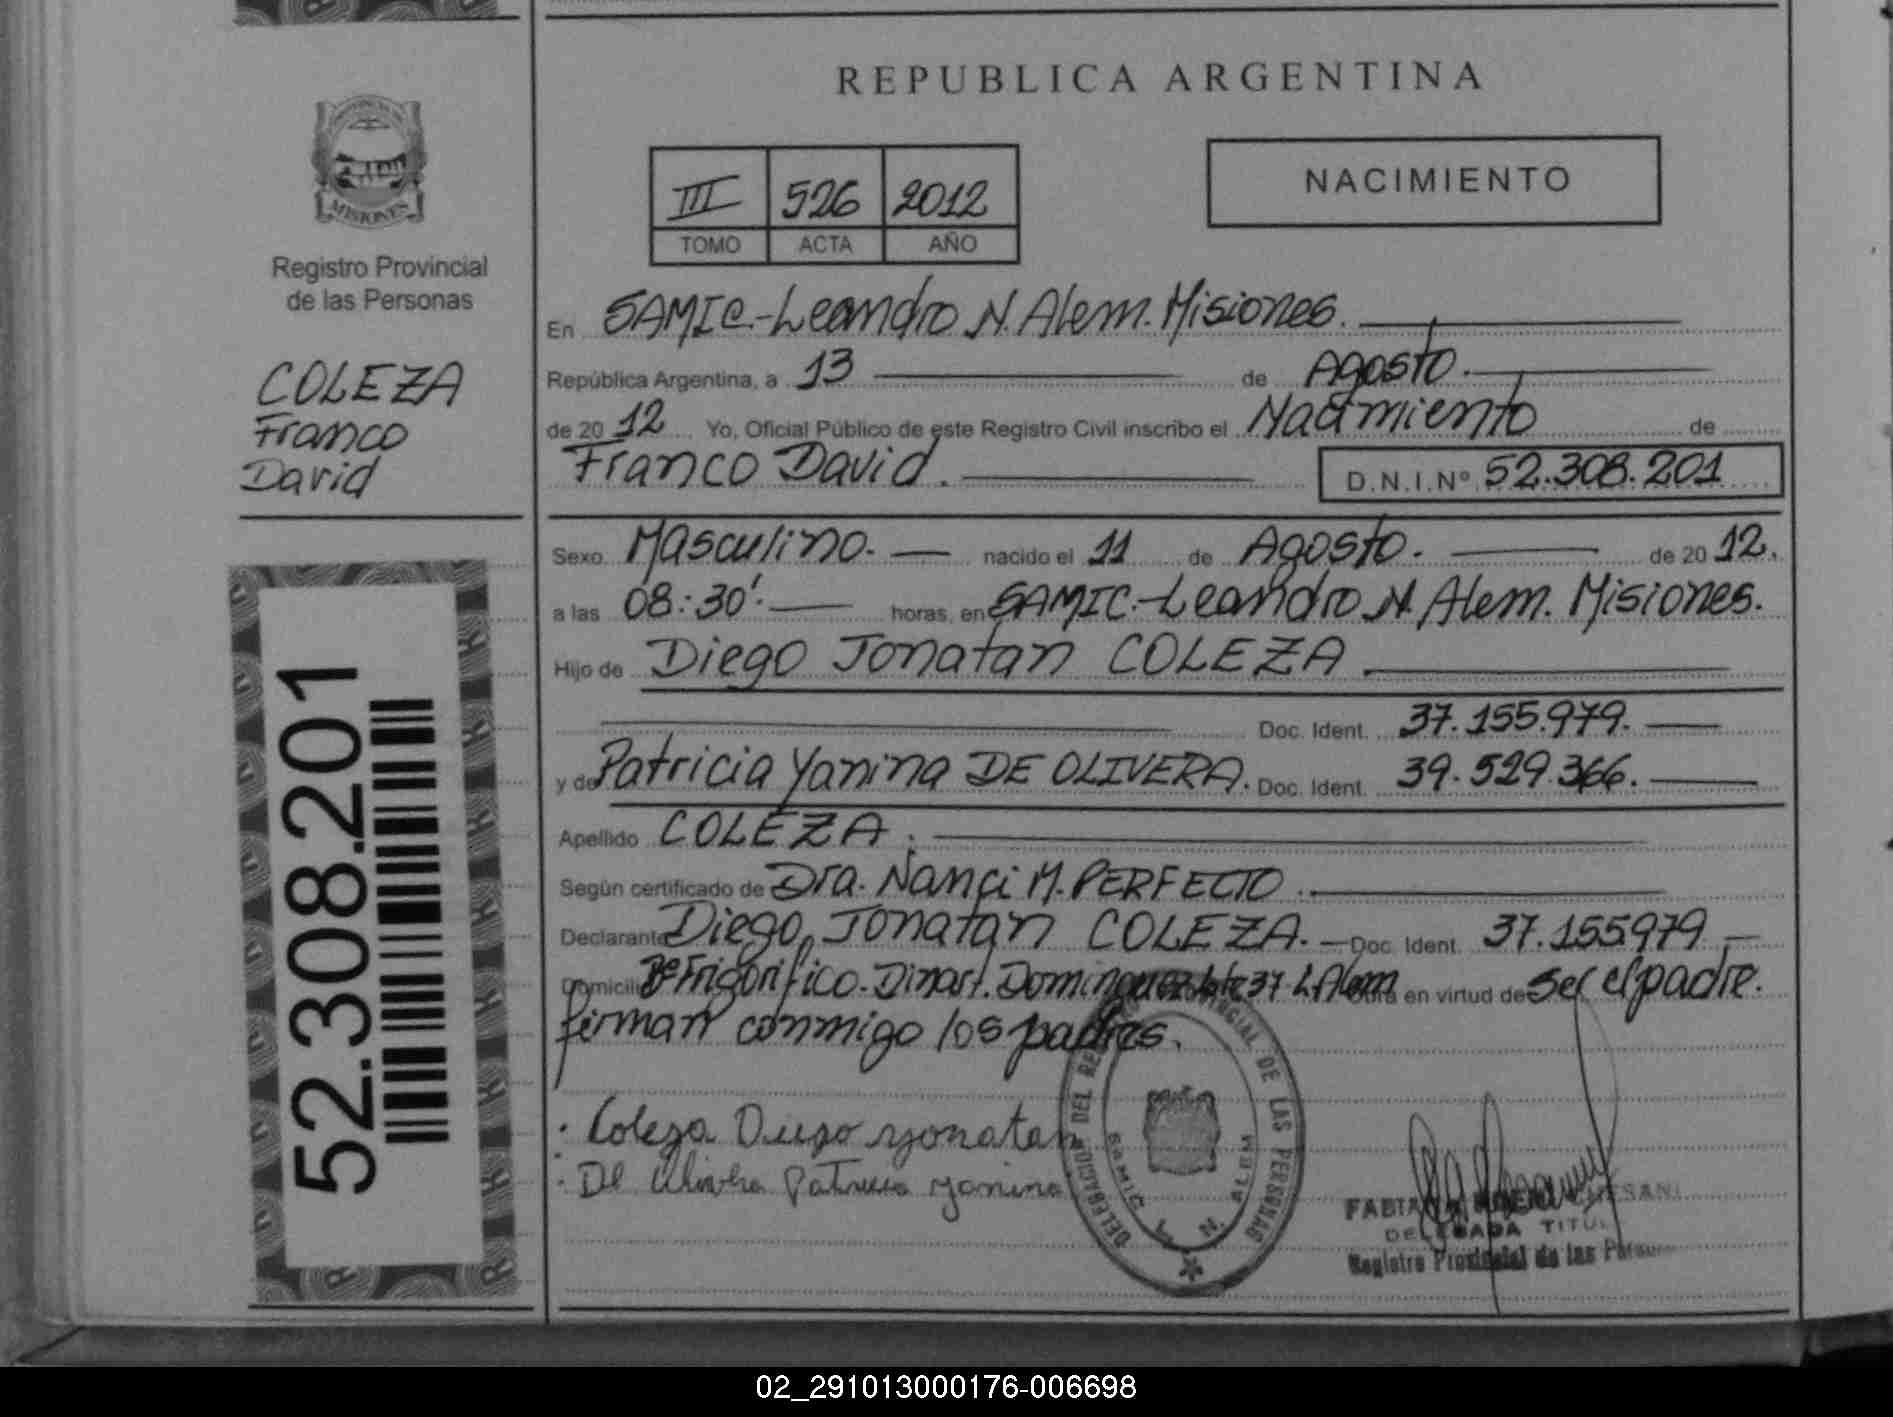 REPUBLICA ARGENTINA
MISIONES
Registro Provincial
de las Personas
COLEZA
Franco
David
52.308.201
III 526 2012
TOMO ACTA AÑO
NACIMIENTO
En SAMIC.-Leandro N. Alem. Misiones.
República Argentina, a 13 de Agosto.
de 20 12 Yo, Oficial Público de este Registro Civil inscribo el Nacimiento de
Franco David. D.N.I.Nº 52.308.201
Sexo Masculino. nacido el 11 de Agosto. de 20 12.
a las 08:30'. horas, en SAMIC.-Leandro N. Alem. Misiones.
Hijo de Diego Jonatan COLEZA
Doc. Ident. 37.155.979.
y de Patricia Yanina DE OLIVERA. Doc. Ident. 39.529.366.
Apellido COLEZA.
Según certificado de Dra. Nanci M. PERFECTO.
Declarante Diego Jonatan COLEZA. Doc. Ident. 37.155979
Domicilio Bº Frigorífico. Dinart. Dominguez Lote 37 L. Alem en virtud de Ser el padre.
firman conmigo los padres.
Coleza Diego yonatan
De Olivera Patricia yanina
DELEGACION DEL REGISTRO PROVINCIAL DE LAS PERSONAS
SAMIC L. N. ALEM
DELEGADA TITULAR
Registro Provincial de las Personas
02_291013000176-006698